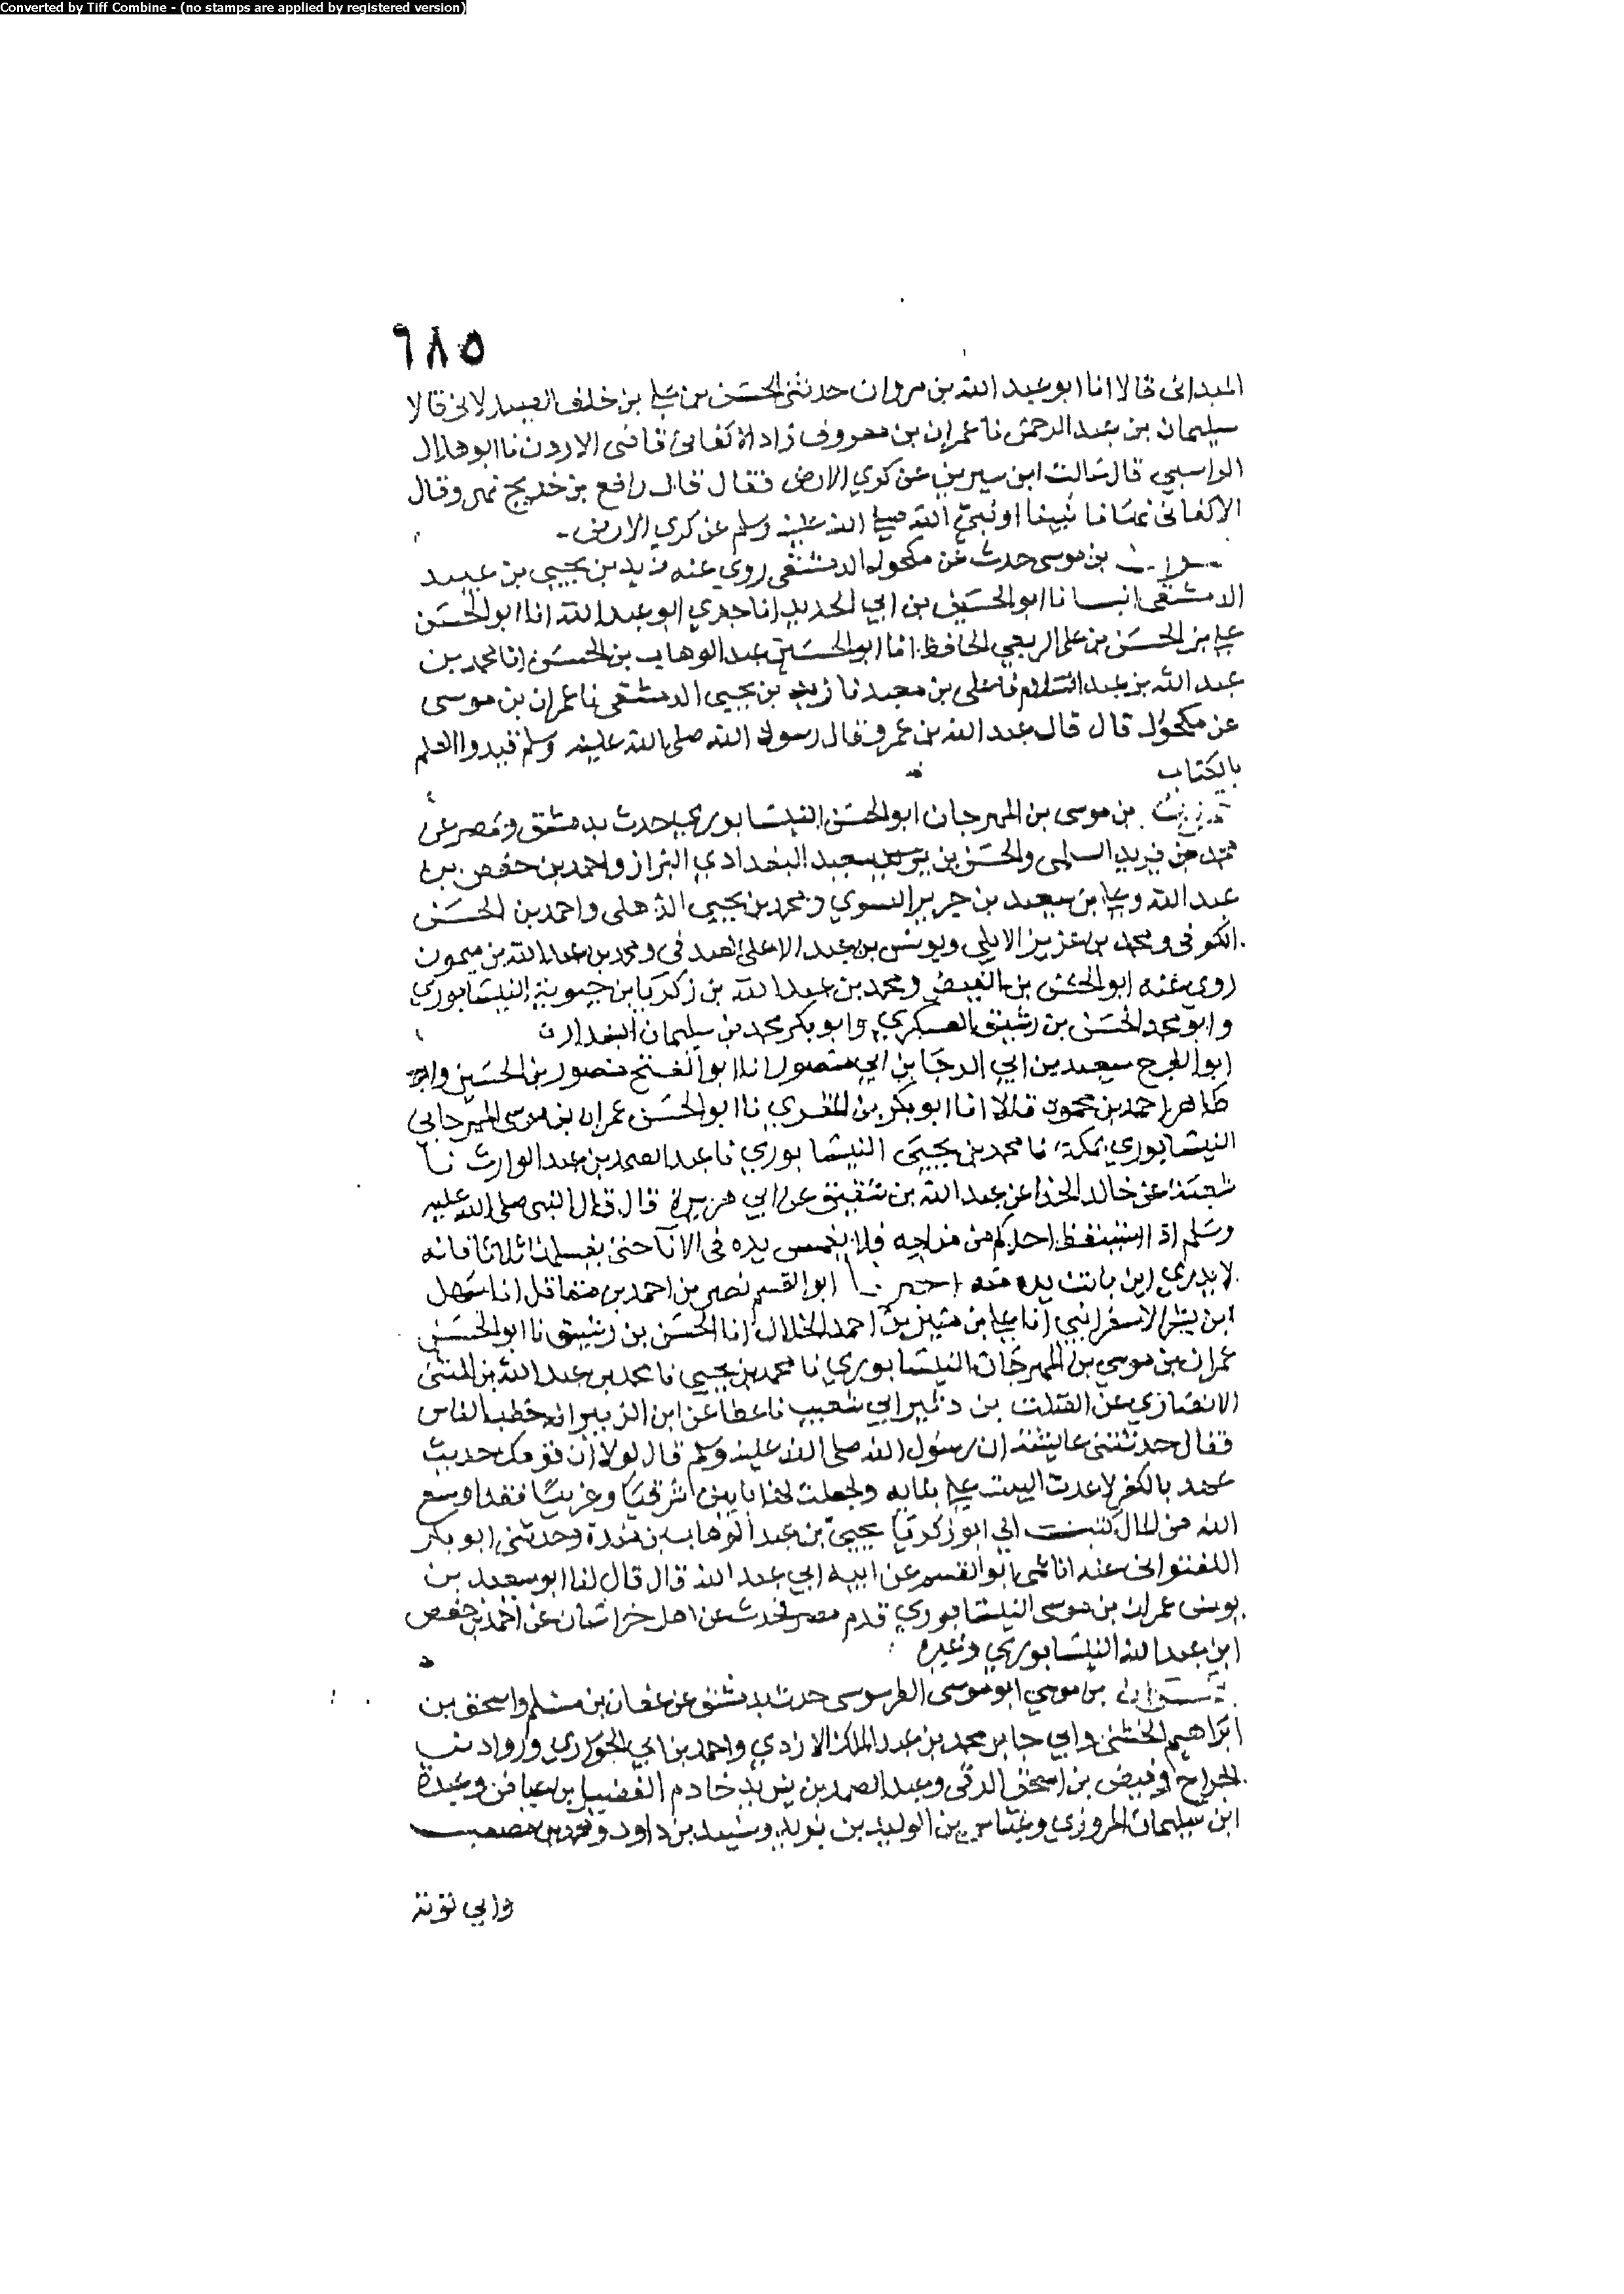 Converted by Tiff Combine - (no stamps are applied by registered version)
٦٨٥
الميداني قالا انا ابو عبد الله بن مروان حدثني الحسن بن علي بن خلف الصيدلاني قالا
سليمان بن عبد الرحمن نا عمران بن معروف زاد الاكفاني قاضي الاردن نا ابو هلال
الراسبي قال سالت ابن سيرين عن كري الارض فقال قال رافع بن خديج نهي وقال
الاكفاني نهانا نبينا او نبي الله صلى الله عليه وسلم عن كري الارض
بن موسى حدث عن مكحول الدمشقي روى عنه زيد بن يحيى بن عبيد
الدمشقي انبانا ابو الحسين بن ابي الحديد انا جدي ابو عبد الله انا ابو الحسن
علي بن الحسن بن علي الربعي الحافظ انا ابو الحسين عبد الوهاب بن الحسن انا محمد بن
عبد الله بن عبد السلام نا علي بن معبد نا زيد بن يحيى الدمشقي نا عمران بن موسى
عن مكحول قال قال عبد الله بن عمرو قال رسول الله صلى الله عليه وسلم قيدوا العلم
بالكتاب
بن موسى بن المهرجان ابو الحسن النيسابوري حدث بدمشق ومصر عن
محمد بن يزيد السلمي والحسن بن سعيد البغدادي البزاز واحمد بن حفص بن
عبد الله وعلي بن سعيد بن جرير النسوي ومحمد بن يحيى الذهلي واحمد بن الحسن
الكوفي ومحمد بن عزيز الايلي ويونس بن عبد الاعلى الصدفي ومحمد بن عبد الله بن ميمون
روى عنه ابو الحسن بن الفيض ومحمد بن عبد الله بن زكريا بن حيوية النيسابوري
وابو محمد الحسن بن رشيق العسكري وابو بكر محمد بن سليمان البندار
ابو الفرج سعيد بن ابي الرجا بن ابي منصور انا ابو الفتح منصور بن الحسين وابو
طاهر احمد بن محمود قالا انا ابو بكر بن المقري نا ابو الحسن عمران بن موسى المهرجاني
النيسابوري بمكة نا محمد بن يحيى النيسابوري نا عبد الصمد بن عبد الوارث نا
شعبة عن خالد الحذا عن عبد الله بن شقيق عن ابي هريرة قال قال النبي صلى الله عليه
وسلم اذا استيقظ احدكم من منامه فلا يغمس يده في الانآ حتى يغسلها ثلاثا فانه
لا يدري اين باتت يده منه اخبرنا ابو القسم نصر بن احمد بن مقاتل انا سهل
ابن بشر الاسفرايني انا علي بن منير بن احمد الخلال انا الحسن بن رشيق نا ابو الحسن
عمران بن موسى بن المهرجان النيسابوري نا محمد بن يحيى نا محمد بن عبد الله بن المثنى
الانصاري عن الصلت بن دينار ابي شعيب نا عطا عن ابن الزبير انه خطب الناس
فقال حدثتني عايشة ان رسول الله صلى الله عليه وسلم قال لولا ان قومك حديث
عهد بالكفر لاعدت البيت على بنايه ولجعلت لها بابين شرقيا وغربيا فقد اوسع
الله من المال كتب الي ابو زكريا يحيى بن عبد الوهاب بن مندة وحدثني ابو بكر
اللفتواني عنه انا عمي ابو القسم عن ابيه ابي عبد الله قال قال لنا ابو سعيد بن
يونس عمران بن موسى النيسابوري قدم مصر فحدث عن اهل خراسان عن احمد بن حفص
ابن عبد الله النيسابوري وغيره
بن موسى ابو موسى الطرسوسي حدث بدمشق عن عفان بن مسلم واسحق بن
ابراهيم الحنيني وابي جابر محمد بن عبد الملك الازدي واحمد بن ابي الحواري ورواد بن
الجراح وفيض بن اسحق الرقي وعبد الصمد بن يزيد خادم الفضيل بن عياض وعبدة
ابن سليمان المروزي وعباس بن الوليد بن مزيد وسنيد بن داود ومحمد بن مصعب
وابي توبة